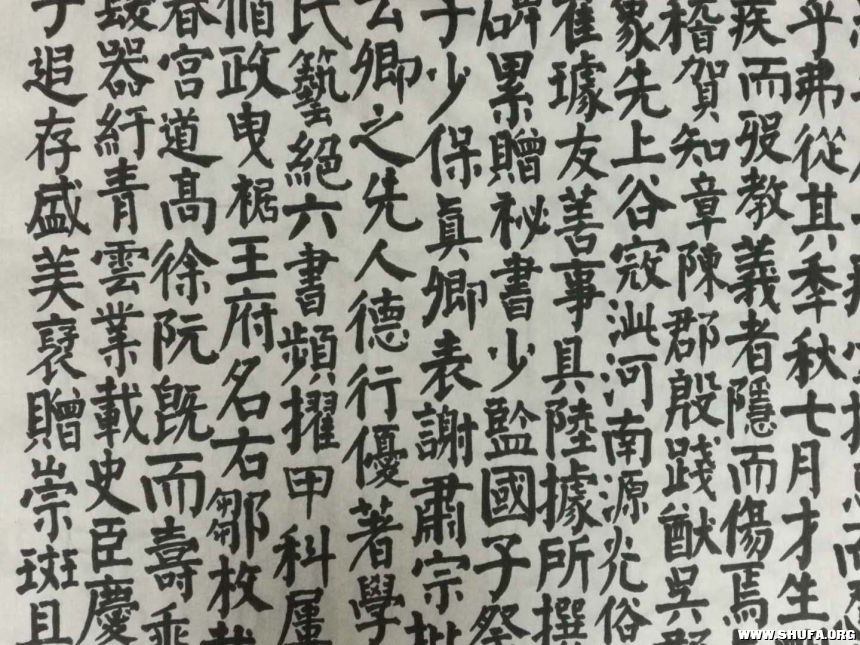 乎弗從其季秋七月才生
疾而歿教義者隱而傷焉
稽賀知章陳郡殷踐猷吳
象先上谷寇泚河南源光俗
崔璩友善事具陸據所撰
碑累贈祕書少監國子祭
子少保真卿表謝肅宗批
公卿之先人德行優著學
氏藝絕六書頻擢甲科屬
脩政曳裾王府名右鄒枚載
春宮道高徐阮既而壽乖
器紆青雲業載史臣慶
于追存盛美褒贈崇班且
WWW.SHUFA.ORG